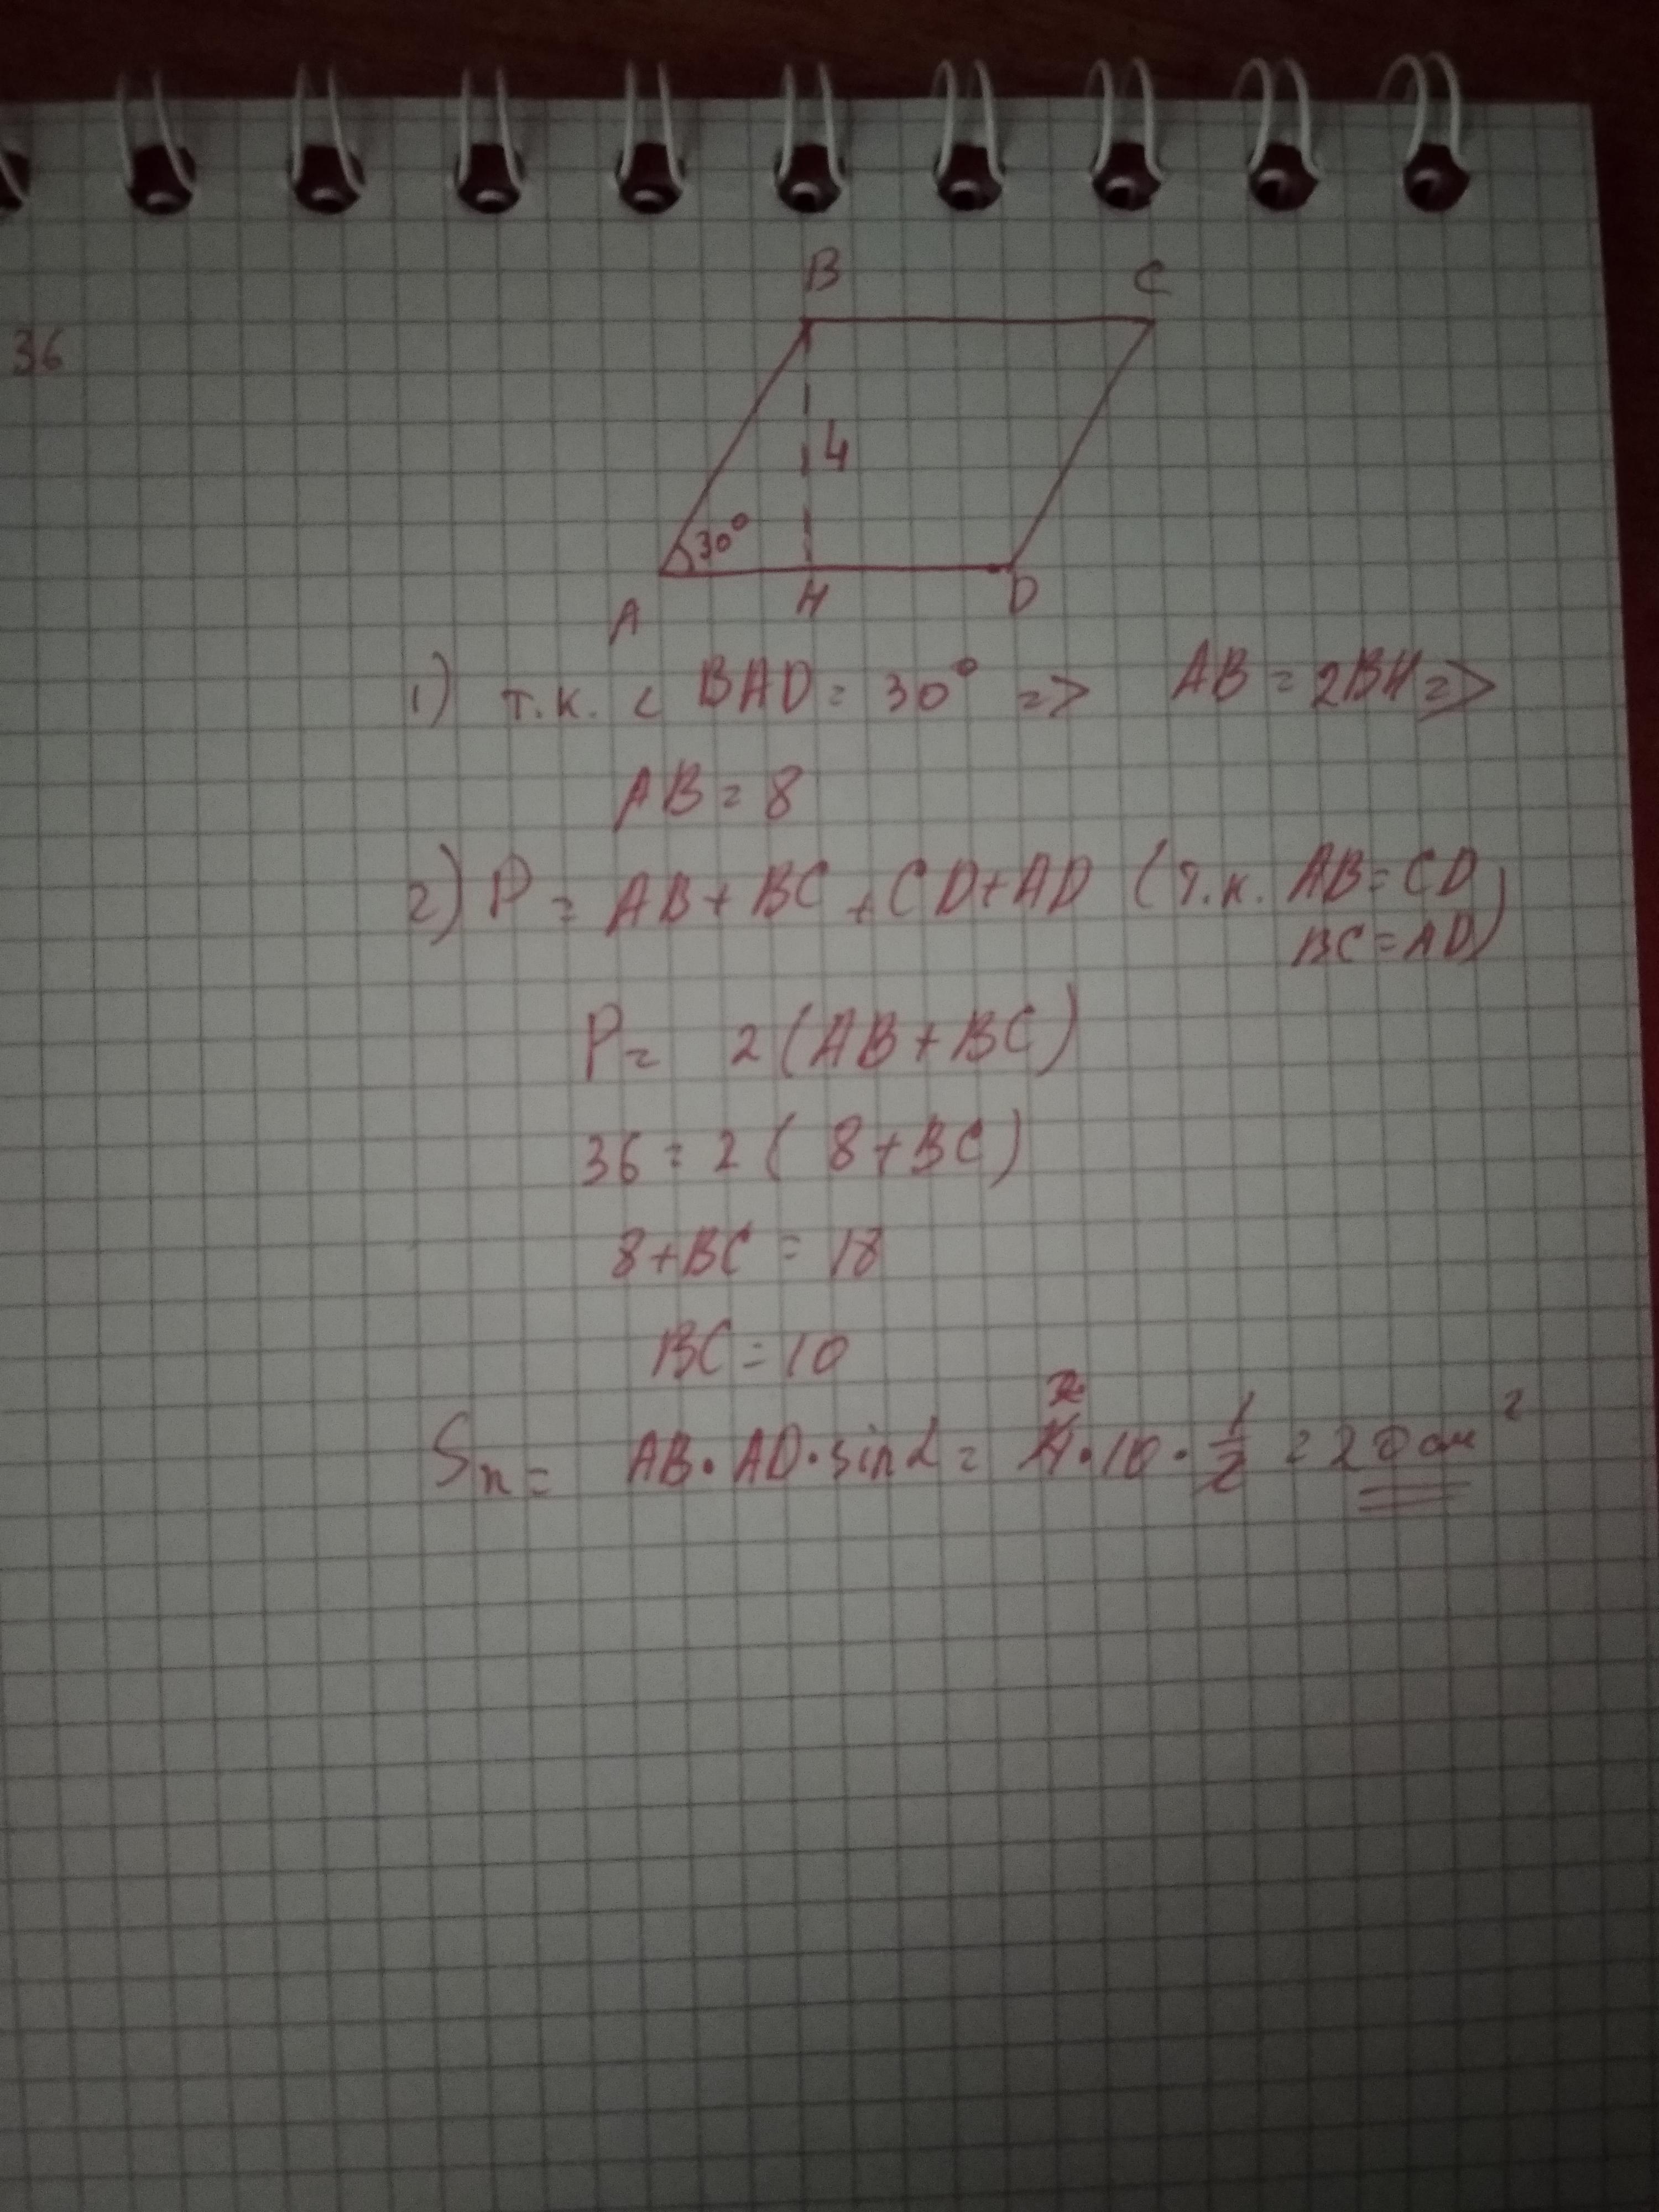 B C
36
4
30°
A H D
1) т.к. < BAD = 30° => AB = 2BH =>
AB = 8
2) P = AB + BC + CD + AD (т.к. AB = CD
BC = AD)
P = 2(AB + BC)
36 = 2(8 + BC)
8 + BC = 18
BC = 10
2
Sп = AB · AD · sin α = 4 · 10 · 1/2 = 20 см²